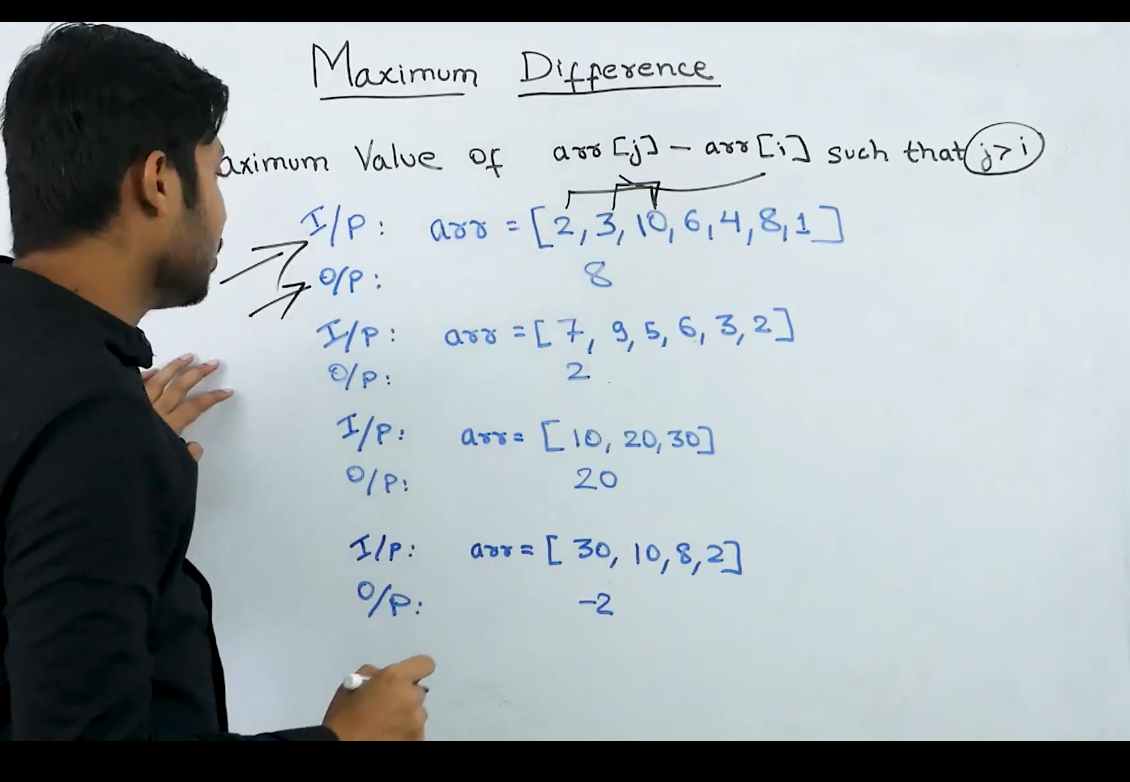 Maximum Difference
aximum Value of arr[j] - arr[i] such that j > i
I/P: arr = [2, 3, 10, 6, 4, 8, 1]
O/P: 8
I/P: arr = [7, 9, 5, 6, 3, 2]
O/P: 2
I/P: arr = [10, 20, 30]
O/P: 20
I/P: arr = [30, 10, 8, 2]
O/P: -2